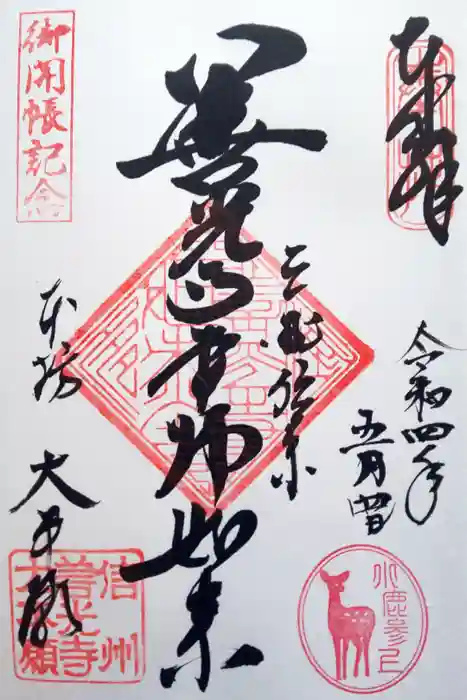 奉拝
三国伝来
善光寺本師如来
本坊
大本願
令和四年
五月四日
御開帳記念
信州
善光寺
大本願